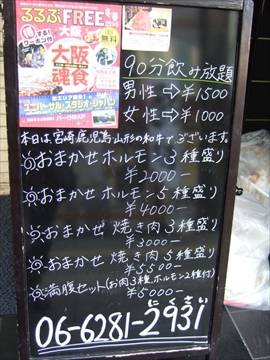 るるぶFREE
大阪
得する!
クーポン付
無料
大阪
魂食
ユニバーサル・スタジオ・ジャパン
90分飲み放題
男性⇨¥1500
女性⇨¥1000
本日は、宮崎鹿児島山形の和牛でございます。
おまかせホルモン3種盛り
¥2000-
おまかせホルモン5種盛り
¥4000-
おまかせ焼き肉3種盛り
¥3000-
おまかせ焼き肉5種盛り
¥5500-
満腹セット(お肉3種、ホルモン2種付)
¥5000-
06-6281-2931